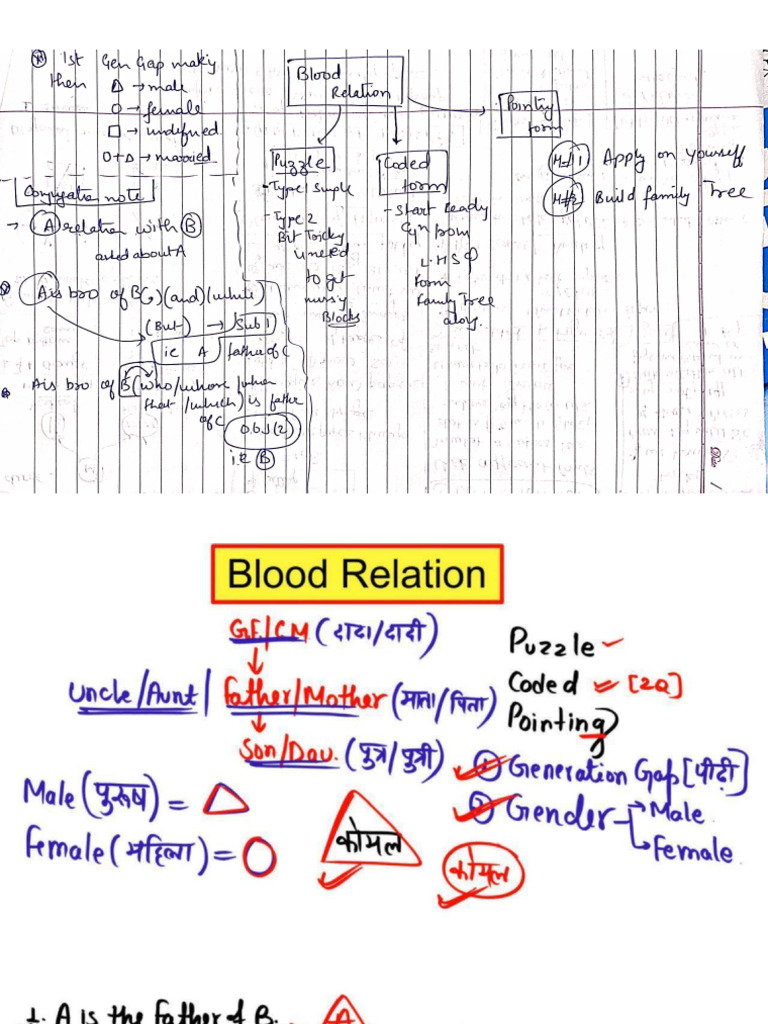 1st Gen Gap making
then
△ → male
○ → female
□ → undefined
○+△ → married
Conjugation note
→ A relation with B
asked about A
A is bro of B (,) (and) (while)
(But) → Sub 1
ie A father of C
A is bro of B (who/whom/when
that/which) is father
of C
Obj (2)
i.e B
Blood
Relation
Puzzle
- Type 1 Simple
- Type 2
Bit Tricky
to get
Blocks
Coded
form
- Start
from
L.H.S
form
Family Tree
Pointing
form
M#1 Apply on yourself
M#2 Build family Tree
Blood Relation
G.F/G.M (दादा/दादी)
Uncle/Aunt / Father/Mother (माता/पिता)
Son/Dau. (पुत्र/पुत्री)
Puzzle
Coded [2Q]
Pointing
① Generation Gap [पीढ़ी]
② Gender
Male
Female
Male (पुरुष) = △
Female (महिला) = ○
कोमल
कोमल
1. A is the father of B.
A